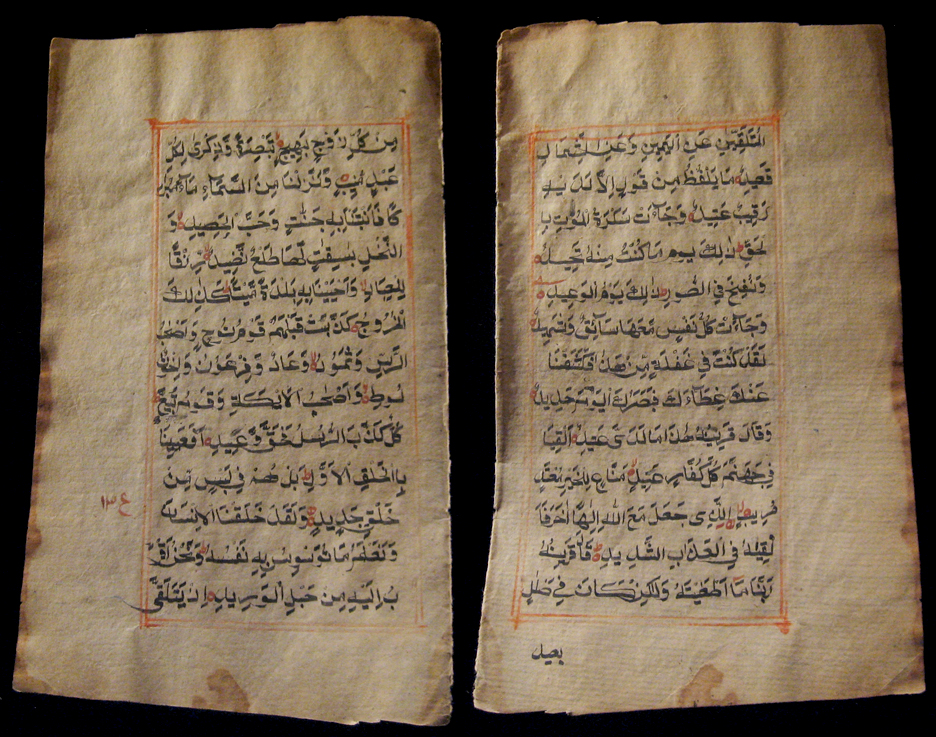 مِن كُلِّ زَوْجٍ بَهِيجٍ تَبْصِرَةً وَّذِكْرٰى لِكُلِّ
عَبْدٍ مُّنِيبٍ وَنَزَّلْنَا مِنَ السَّمَآءِ مَآءً مُّبٰرَ
كًا فَاَنْبَتْنَا بِهٖ جَنّٰتٍ وَّحَبَّ الْحَصِيدِ وَ
النَّخْلَ بٰسِقٰتٍ لَّهَا طَلْعٌ نَّضِيدٌ رِّزْقًا
لِّلْعِبَادِ وَاَحْيَيْنَا بِهٖ بَلْدَةً مَّيْتًا كَذٰلِكَ
الْخُرُوجُ كَذَّبَتْ قَبْلَهُمْ قَوْمُ نُوحٍ وَّاَصْحٰبُ
الرَّسِّ وَثَمُودُ وَعَادٌ وَّفِرْعَوْنُ وَاِخْوَانُ
لُوطٍ وَّاَصْحٰبُ الْاَيْكَةِ وَقَوْمُ تُبَّعٍ
كُلٌّ كَذَّبَ الرُّسُلَ فَحَقَّ وَعِيدِ اَفَعَيِينَا
بِالْخَلْقِ الْاَوَّلِ بَلْ هُمْ فِي لَبْسٍ مِّنْ
خَلْقٍ جَدِيدٍ وَلَقَدْ خَلَقْنَا الْاِنْسَانَ
وَنَعْلَمُ مَا تُوَسْوِسُ بِهٖ نَفْسُهُ وَنَحْنُ اَقْرَ
بُ اِلَيْهِ مِنْ حَبْلِ الْوَرِيدِ اِذْ يَتَلَقَّى
الْمُتَلَقِّيٰنِ عَنِ الْيَمِينِ وَعَنِ الشِّمَالِ
قَعِيدٌ مَا يَلْفِظُ مِنْ قَوْلٍ اِلَّا لَدَيْهِ
رَقِيبٌ عَتِيدٌ وَجَآءَتْ سَكْرَةُ الْمَوْتِ بِا
لْحَقِّ ذٰلِكَ يَوْمَ مَا كُنْتَ مِنْهُ تَحِيدُ
وَنُفِخَ فِي الصُّورِ ذٰلِكَ يَوْمُ الْوَعِيدِ
وَجَآءَتْ كُلُّ نَفْسٍ مَّعَهَا سَآئِقٌ وَّشَهِيدٌ
لَقَدْ كُنْتَ فِي غَفْلَةٍ مِّنْ هٰذَا فَكَشَفْنَا
عَنْكَ غِطَآءَكَ فَبَصَرُكَ الْيَوْمَ حَدِيدٌ
وَقَالَ قَرِينُهُ هٰذَا مَا لَدَيَّ عَتِيدٌ اَلْقِيَا
فِي جَهَنَّمَ كُلَّ كَفَّارٍ عَنِيدٍ مَّنَّاعٍ لِّلْخَيْرِ مُعْتَدٍ
مُّرِيبٍ الَّذِي جَعَلَ مَعَ اللّٰهِ اِلٰهًا اٰخَرَ فَاَ
لْقِيٰهُ فِي الْعَذَابِ الشَّدِيدِ قَالَ قَرِينُهُ
رَبَّنَا مَا اَطْغَيْتُهُ وَلٰكِنْ كَانَ فِي ضَلٰلٍ
بعيد